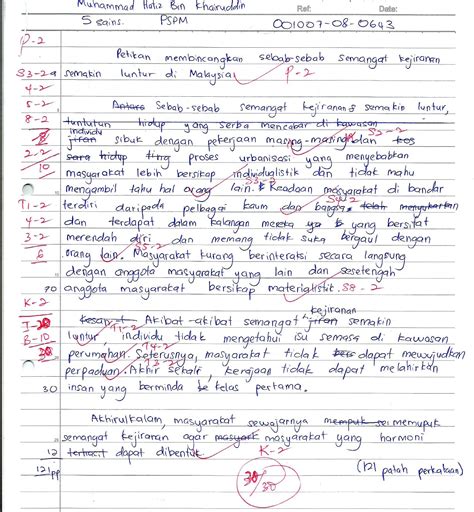 Muhammad Hafiz Bin Khairuddin Ref: Date:
5 sains. PSPM 001007-08-0643
P-2
Petikan membincangkan sebab-sebab semangat kejiranan
S3-2 semakin luntur di Malaysia P-2
4-2
5-2 Antara Sebab-sebab semangat kejiranan semakin luntur,
8-2 tuntutan hidup yang serba mencabar di kawasan
individu
jiran sibuk dengan pekerjaan masing-masing dan S2-2
2-2 hidup proses urbanisasi yang menyebabkan
10 masyarakat lebih bersikap individualistik dan tidak mahu
S3-2
mengambil tahu hal orang lain. Keadaan masyarakat di bandar
S4-2
T1-2 terdiri daripada pelbagai kaum dan bangsa telah
4-2 dan terdapat dalam kalangan mereka yang bersifat
3-2 merendah diri dan memang tidak suka bergaul dengan
S5-2
6 orang lain. Masyarakat kurang berinteraksi secara langsung
dengan anggota masyarakat yang lain dan sesetengah
70 anggota masyarakat bersikap materialistik. S8-2
K-2
kejiranan
I-20 Kesan Akibat-akibat semangat jiran semakin
T1-2
B-10 luntur, individu tidak mengetahui isu semasa di kawasan
T4-2
30 perumahan. Seterusnya, masyarakat tidak dapat mewujudkan
T3-2
perpaduan. Akhir sekali kerajaan tidak dapat melahirkan
30 insan yang berminda kelas pertama.
Akhirulkalam, masyarakat sewajarnya mempuk memupuk
semangat kejiranan agar masyark masyarakat yang harmoni
12 dapat dibentuk. K-2
121pp (121 patah perkataan)
30
30